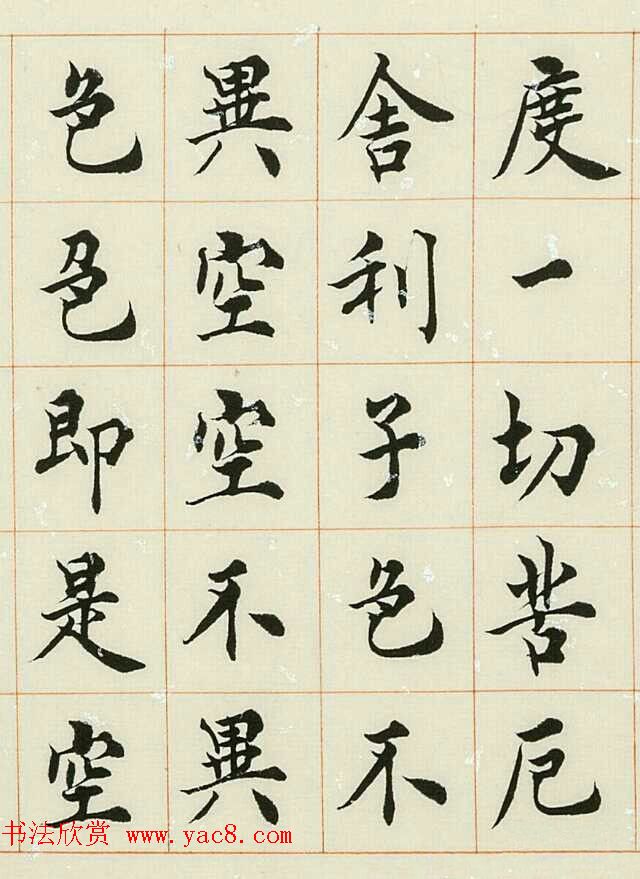 度一切苦厄
舍利子色不
異空空不異
色色即是空
书法欣赏 www.yac8.com